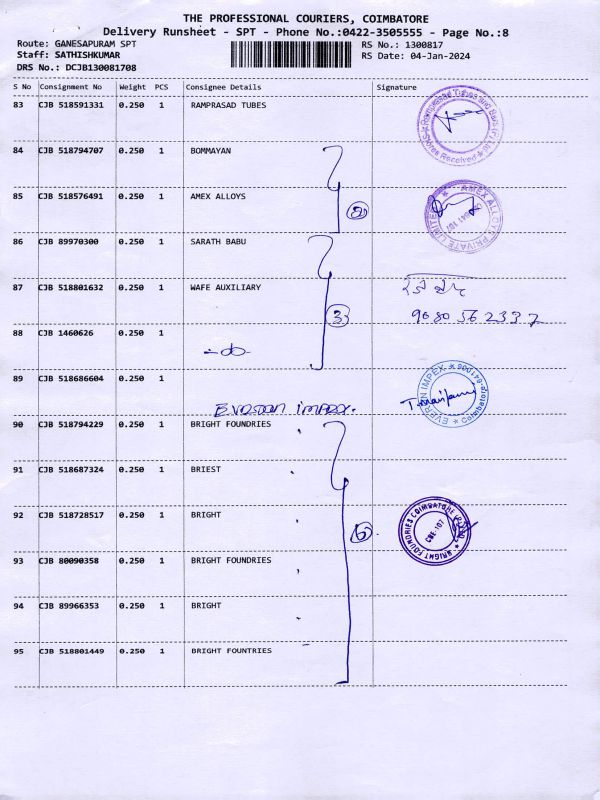 THE PROFESSIONAL COURIERS, COIMBATORE
Delivery Runsheet - SPT - Phone No.:0422-3505555 - Page No.:8
Route: GANESAPURAM SPT RS No.: 1300817
Staff: SATHISHKUMAR RS Date: 04-Jan-2024
DRS No.: DCJB130081708
S No Consignment No Weight PCS Consignee Details Signature
83 CJB 518591331 0.250 1 RAMPRASAD TUBES
84 CJB 518794707 0.250 1 BOMMAYAN
85 CJB 518576491 0.250 1 AMEX ALLOYS
2
AMEX ALLOYS PRIVATE LIMITED
86 CJB 89970300 0.250 1 SARATH BABU
87 CJB 518801632 0.250 1 WAFE AUXILIARY
3 9080562337
88 CJB 1460626 0.250 1
-do-
89 CJB 518686604 0.250 1
EVERGREEN IMPEX * Coimbatore-641006 *
90 CJB 518794229 0.250 1 BRIGHT FOUNDRIES
91 CJB 518687324 0.250 1 BRIEST
92 CJB 518728517 0.250 1 BRIGHT
6
BRIGHT FOUNDRIES COIMBATORE
CBE-107
93 CJB 80090358 0.250 1 BRIGHT FOUNDRIES
94 CJB 89966353 0.250 1 BRIGHT
95 CJB 518801449 0.250 1 BRIGHT FOUNTRIES